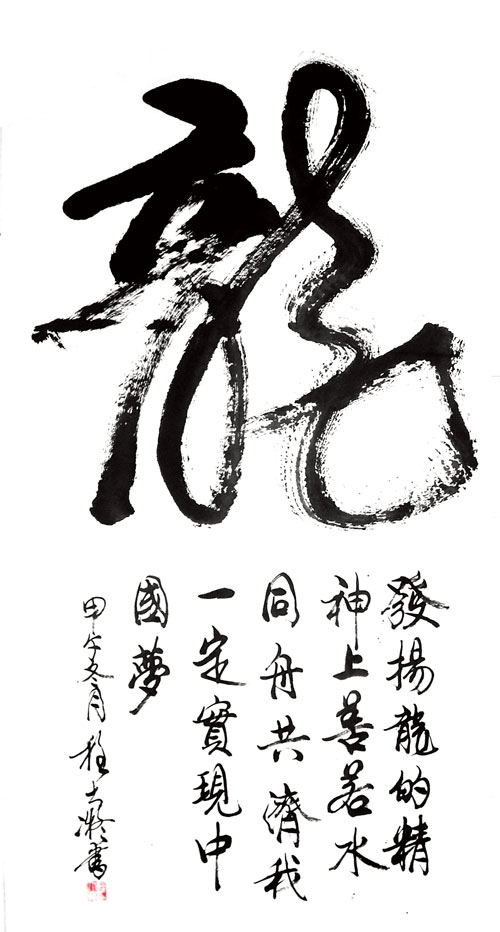 龍
發揚龍的精
神上善若水
同舟共濟我
一定實現中
國夢
甲午冬月 書